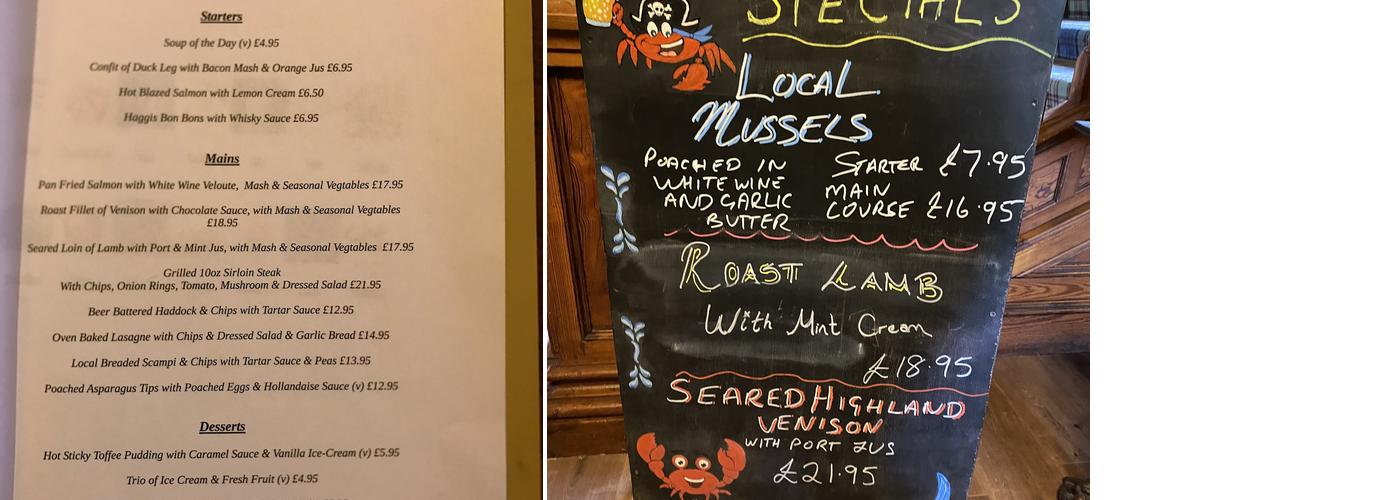 Starters
Soup of the Day (v) £4.95
Confit of Duck Leg with Bacon Mash & Orange Jus £6.95
Hot Blazed Salmon with Lemon Cream £6.50
Haggis Bon Bons with Whisky Sauce £6.95
Mains
Pan Fried Salmon with White Wine Veloute, Mash & Seasonal Vegtables £17.95
Roast Fillet of Venison with Chocolate Sauce, with Mash & Seasonal Vegtables
£18.95
Seared Loin of Lamb with Port & Mint Jus, with Mash & Seasonal Vegtables £17.95
Grilled 10oz Sirloin Steak
With Chips, Onion Rings, Tomato, Mushroom & Dressed Salad £21.95
Beer Battered Haddock & Chips with Tartar Sauce £12.95
Oven Baked Lasagne with Chips & Dressed Salad & Garlic Bread £14.95
Local Breaded Scampi & Chips with Tartar Sauce & Peas £13.95
Poached Asparagus Tips with Poached Eggs & Hollandaise Sauce (v) £12.95
Desserts
Hot Sticky Toffee Pudding with Caramel Sauce & Vanilla Ice-Cream (v) £5.95
Trio of Ice Cream & Fresh Fruit (v) £4.95
SPECIALS
LOCAL
MUSSELS
POACHED IN
WHITE WINE
AND GARLIC
BUTTER
STARTER £7.95
MAIN
COURSE £16.95
ROAST LAMB
With Mint Cream
£18.95
SEARED HIGHLAND
VENISON
WITH PORT JUS
£21.95